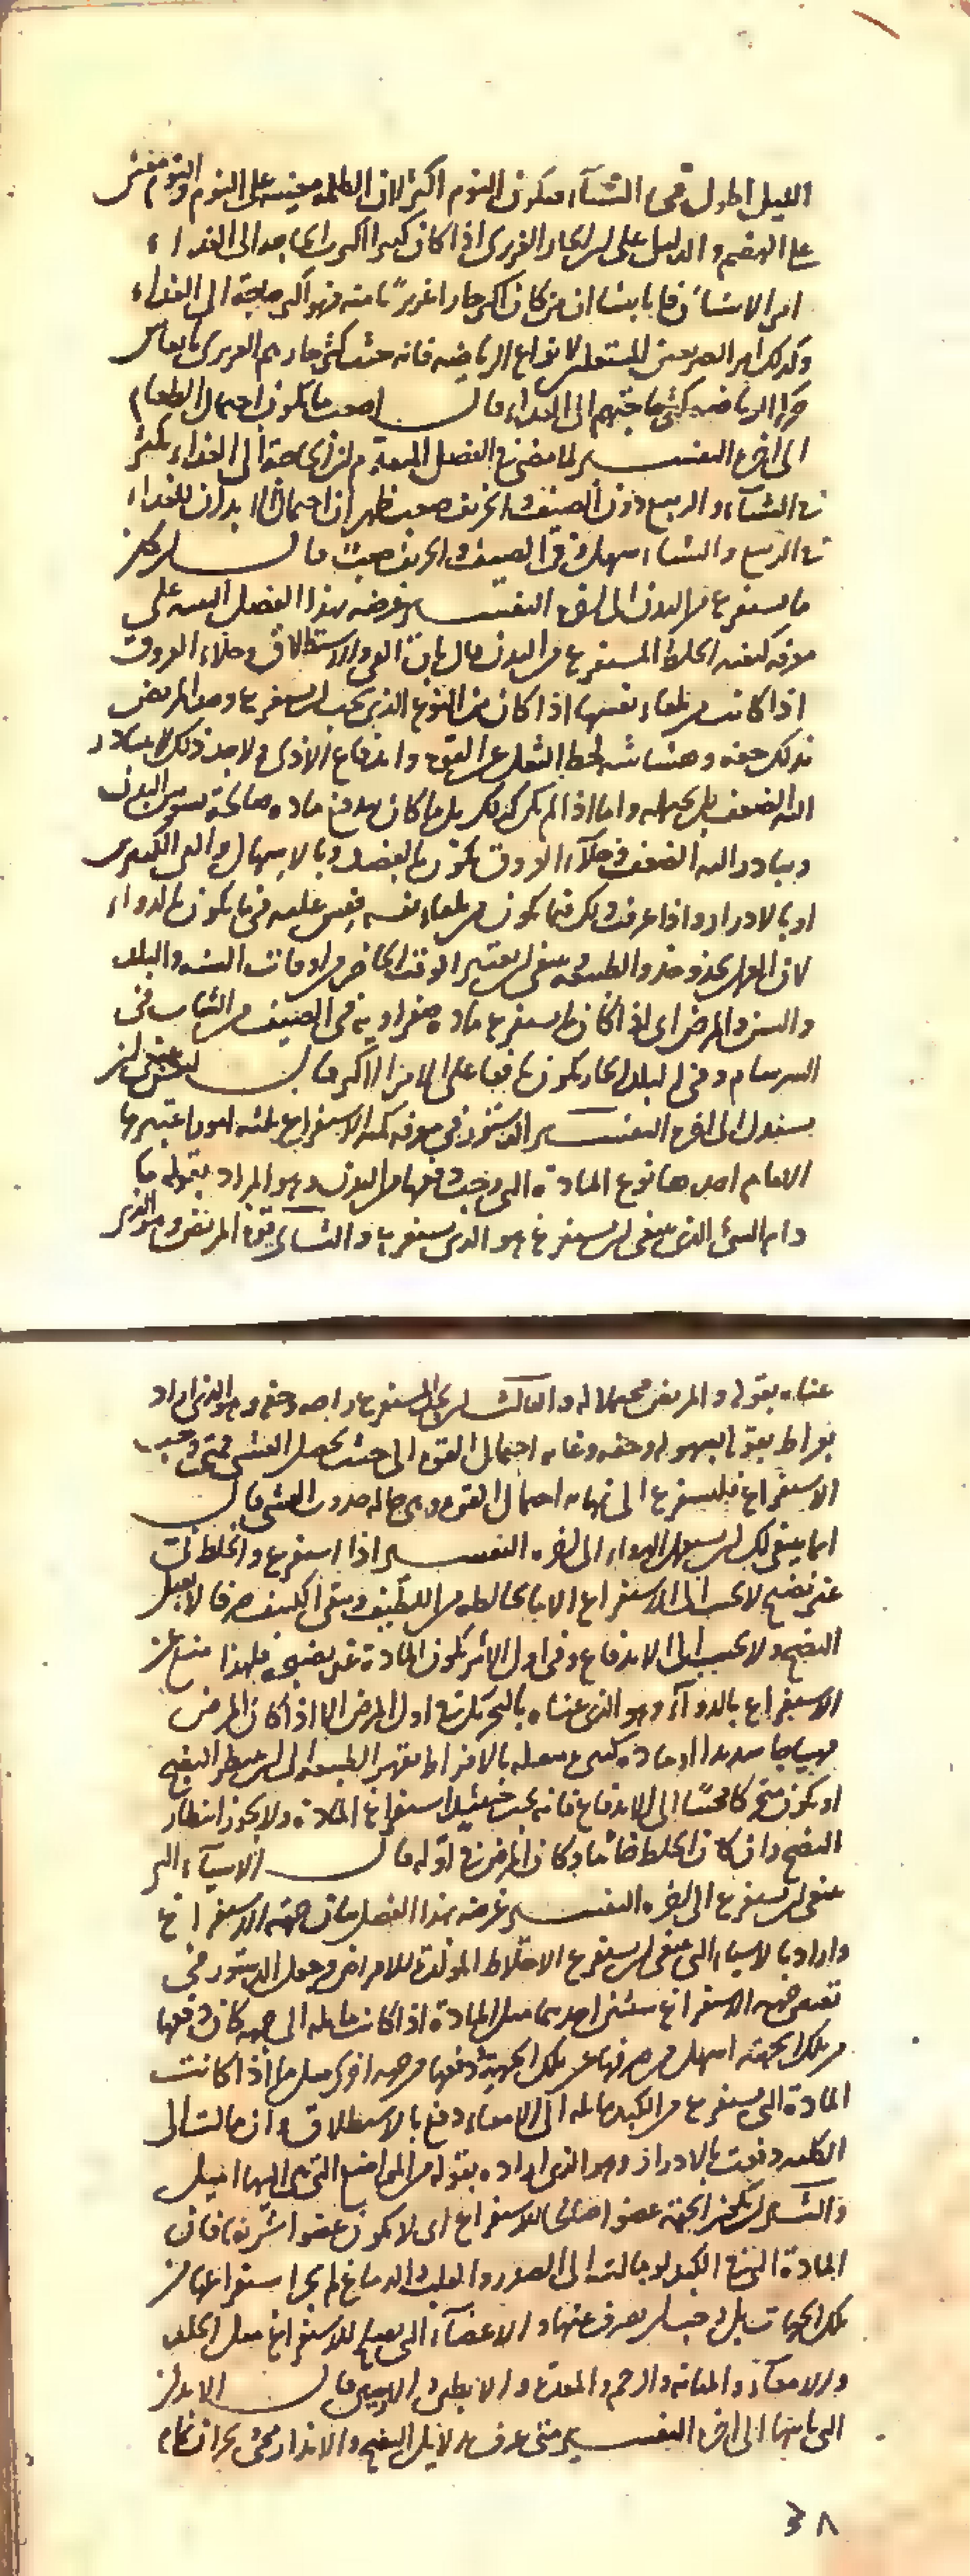 الليل اطول في الشتاء فيكون النوم اكثر لان الظلمه معينه على النوم والنوم معين
على الهضم والدليل على ان الحار الغريزي اذا كان كثيرا اكثر الحاجه الى الغداء
امر الاسنان فانا بينا ان من كان اكثر حارا غريزيا منه فهو اكثر حاجة الى الغداء
وكذلك امر الصريعين المستعملين لانواع الرياضه فانه حيث كثر حارهم الغريزي
الرياضه كثر حاجتهم الى الغداء قال اصعب ما يكون احتمال الطعام
الى اخره التفسير لما مضى في الفصل المتقدم ان الحاجة الى الغداء تكثر
في الشتاء والربيع دون الصيف والخريف ظهر ان احتمال الابدان للغداء
في الربيع والشتاء سهل وفي الصيف والخريف صعب قال ان كان
ما يستفرغ من البدن الى اخره التفسير غرضه بهذا الفصل التنبيه على
معرفه كيفيه الخلط المستفرغ من البدن قال بان القي والاستطلاق وخلاء العروق
اذا كانت من تلقاء نفسها اذا كان من النوع الذي يجب ان يستفرغ وجد المريض
بذلك خفه وهشاشه لحط الثقل عن القوه واندفاع الاذى ولاجل ذلك لا يبادر
اليه الضعف بل يحتمله واما اذا لم يكن كذلك بل ما كان يندفع ماده صالحة البدن
ويبادر اليه الضعف وخلاء العروق يكون بالفصد وبالاسهال والقي الكثيرين
او بالادرار واذا عرفت ذلك فيما يكون من تلقاء نفسه فقس عليه فيما يكون بالدواء
لان المعالج يحذو حذو الطبيعه وينبغي ان يعتبر الوقت الحاضر من اوقات السنه والبلد
والسن والمرض اي اذا كان ما يستفرغ ماده صفراويه في الصيف من الشاب في
السرسام وفي البلد الحار يكون نافعا على الامر الاكثر قال ليس ينبغي ان
يستدل الى اخره التفسير الدستور في معرفه كميه الاستفراغ ثلثه امور اعتبرها
الامام احدها نوع المادة التي وجب دفعها من البدن وهو المراد بقوله ما
دام الشئ الذي ينبغي ان يستفرغ هو الذي يستفرغ والثاني قوة المريض وهو الذي
عناه بقوله والمريض محتملا له والثالث ان يجد المستفرغ راحه وخفه وهو الذي اراد
بقراط بقوله بسهوله وخفه وغايه احتمال القوه الى حيث يحصل الغشي فمتى وجب
الاستفراغ فليستفرغ الى نهايه احتمال القوه وهي حاله حدوث الغشي قال
انما ينبغي لك ان تستعمل الدواء الى اخره التفسير اذا استفرغ والخلط ني
غير نضيج لا يجيب الى الاستفراغ الا ما يخالطه من اللطيف ويبقى الكثيف صرفا لا يقبل
النضج ولا يجيب الى الاندفاع وفي اول الامر تكون المادة غير نضيجه فلهذا منع عن
الاستفراغ بالدواء وهو الذي عناه بالتحريك في اول المرض الا اذا كان المرض
مهياجا
او يكون متحركا محتاجا الى الاندفاع فانه يجب حينئذ استفراغ المادة ولا يجوز انتظار
النضج وان كان الخلط خاما وكان المرض في اوله قال الاشياء التي
ينبغي ان تستفرغ الى اخره التفسير غرضه بهذا الفصل بيان جهة الاستفراغ
واراد بالاشياء التي ينبغي ان تستفرغ الاخلاط المولدة للامراض وجعل الدستور في
تعيين جهه الاستفراغ شيئين احدهما ميل المادة اذا كانت مايله الى جهه كان دفعها
من تلك الجهه اسهل من صرفها عن تلك الجهة ودفعها من جهه اخرى مثل ما اذا كانت
المادة التي تستفرغ من الكبد مايله الى الامعاء دفع بالاستطلاق وان مالت الى
الكليه دفعت بالادرار وهو الذي اراده بقوله من المواضع التي هي اليها اميل
والثاني ان تكون الجهة عضوا صالحا للاستفراغ اي لا يكون عضوا شريفا فان
المادة التي في الكبد لو مالت الى الصدر والقلب والدماغ لم يجز استفراغها من
تلك الجهات بل وجب ان يصرف عنها والاعضاء التي تصلح للاستفراغ مثل الجلد
والامعاء والمثانه والرحم والمعدة والابطين والاربيتين قال الابدان
التي ياتيها الى اخره التفسير متى عرف دلايل النضج والانذار بمجئ بحران تام
٣٨